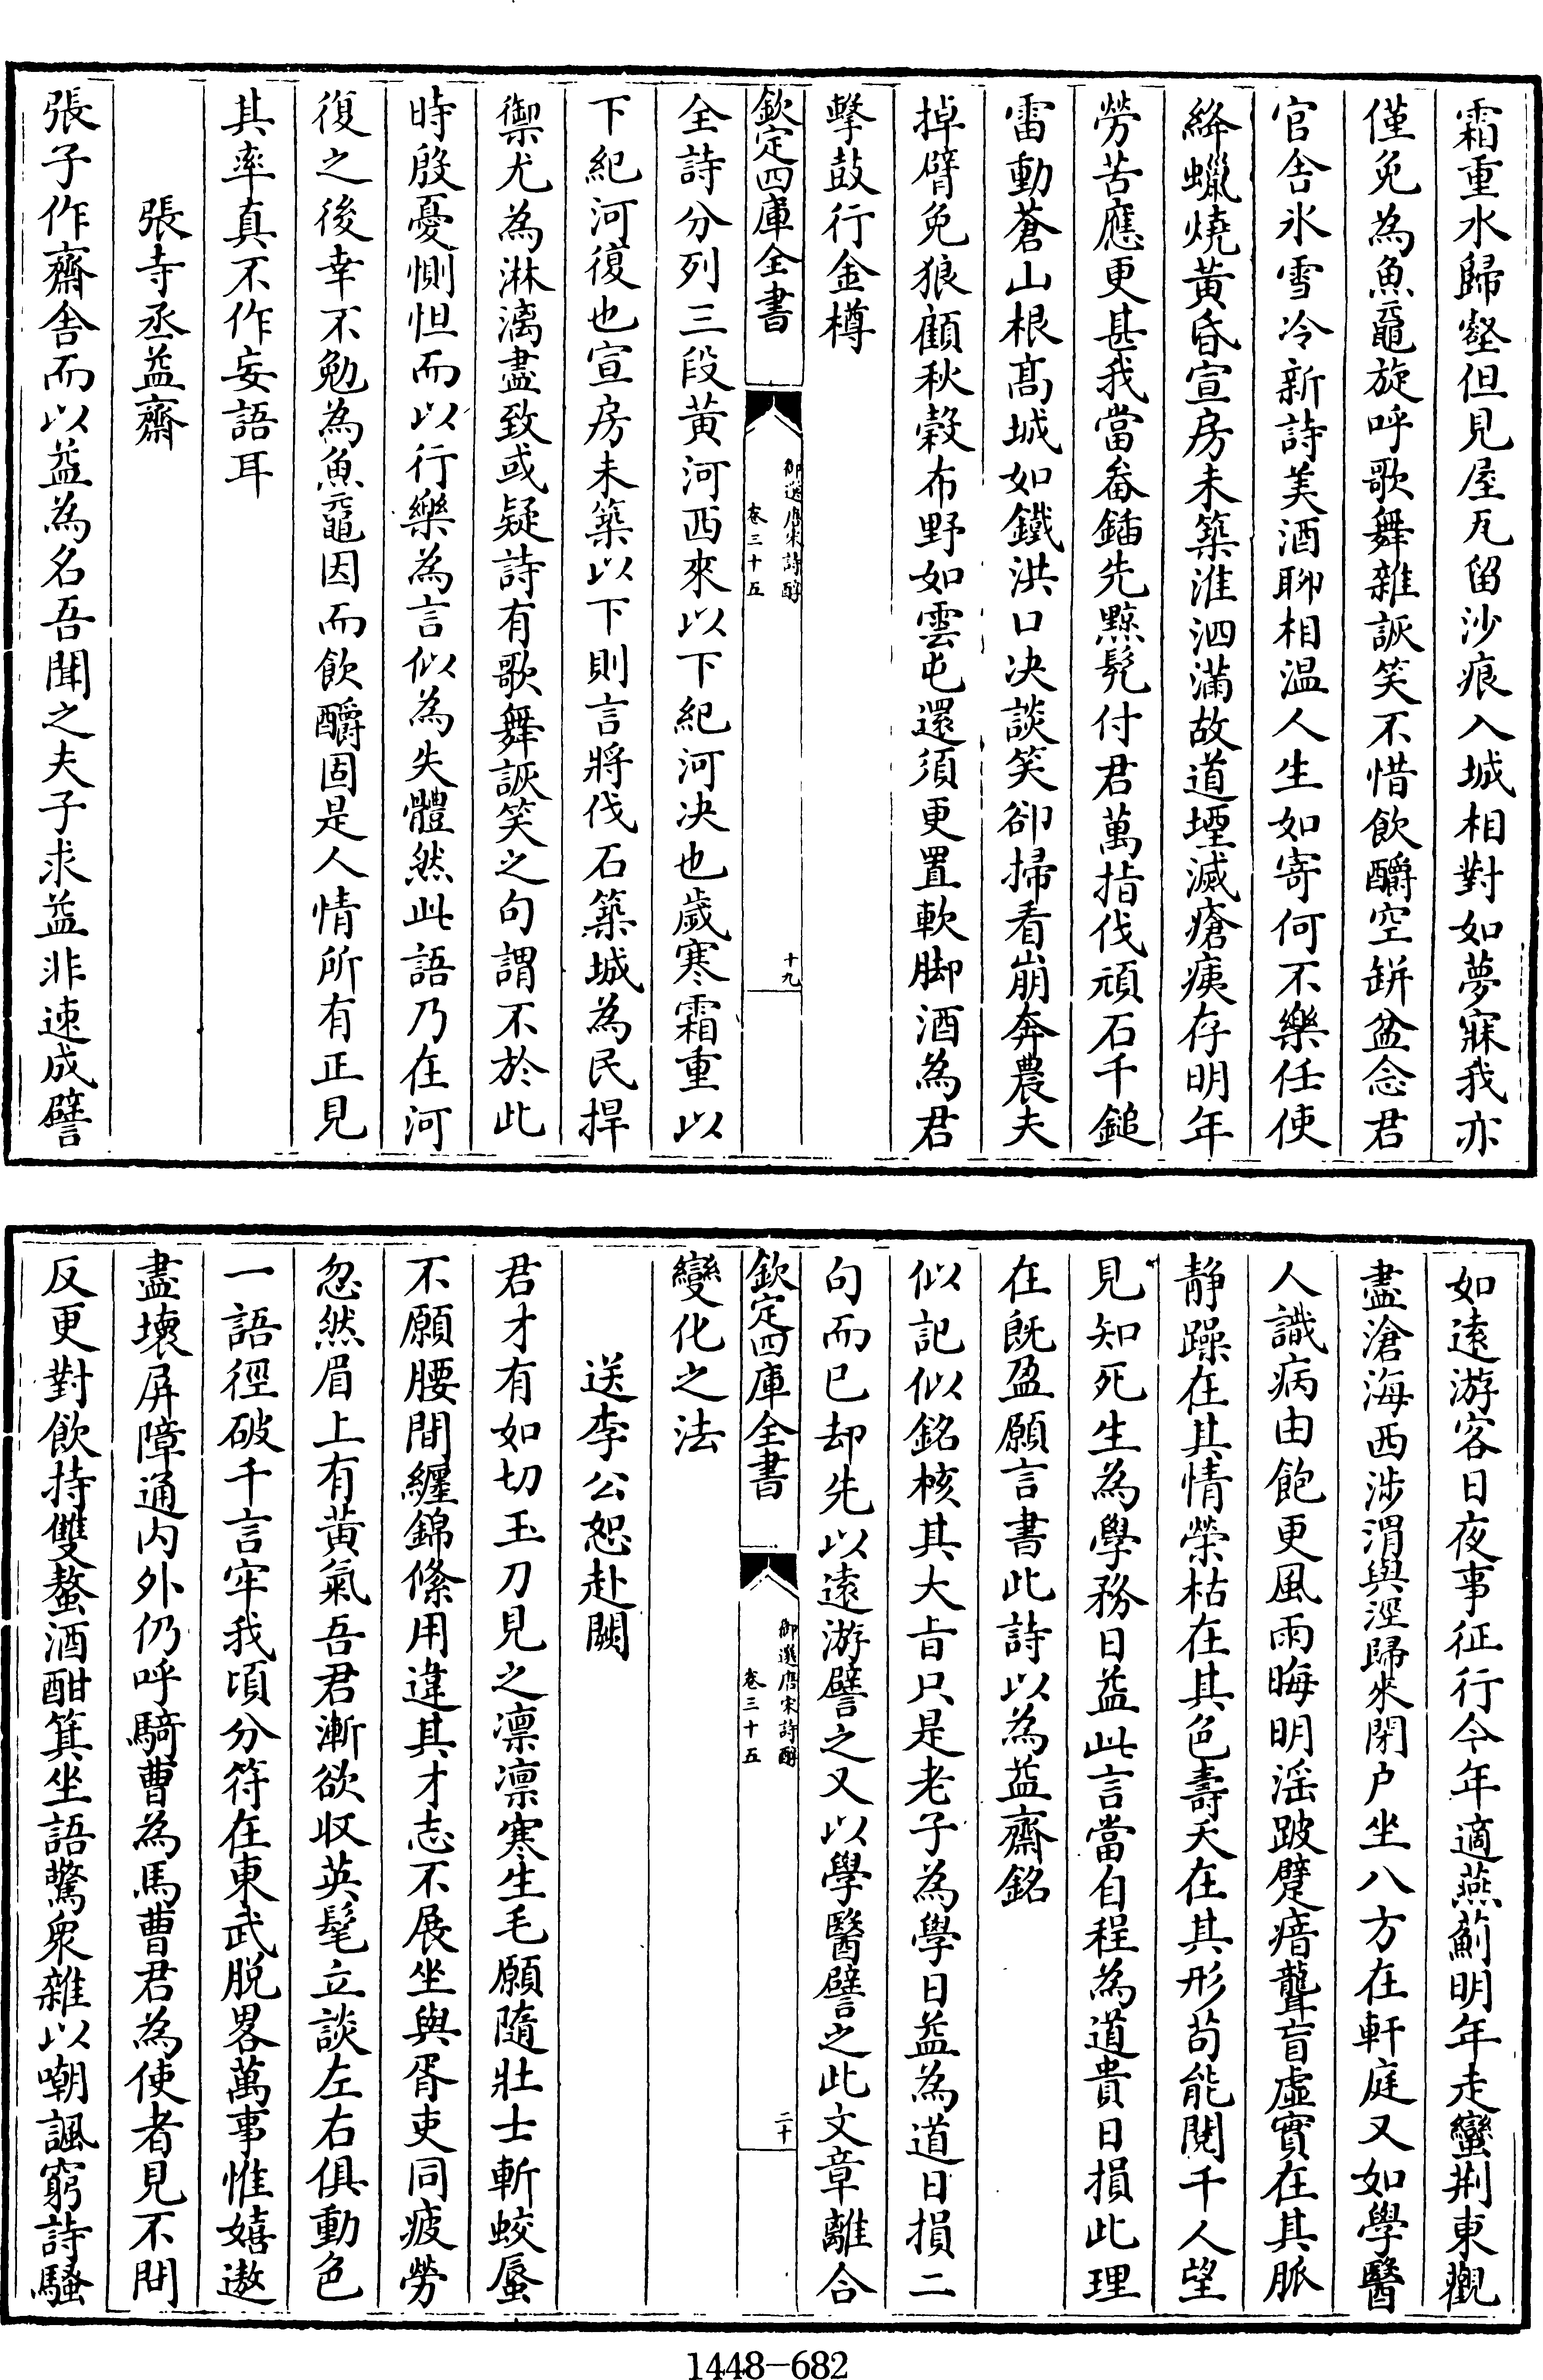 霜重水歸壑但見屋瓦留沙痕入城相對如夢寐我亦
僅免為魚黿旋呼歌舞雜詼笑不惜飲釂空缾盆念君
官舍氷雪冷新詩美酒聊相温人生如寄何不樂任使
絳蠟燒黃昏宣房未築淮泗滿故道堙滅瘡痍存明年
勞苦應更甚我當畚鍤先黥髠付君萬指伐頑石千鎚
雷動蒼山根髙城如鐵洪口決談笑卻掃看崩奔農夫
掉臂免狼顧秋榖布野如雲屯還須更置軟脚酒為君
擊鼓行金樽
欽定四庫全書
御選唐宋詩醇
卷三十五
十九
全詩分列三段黃河西來以下紀河決也歲寒霜重以
下紀河復也宣房未築以下則言將伐石築城為民捍
禦尤為淋漓盡致或疑詩有歌舞詼笑之句謂不於此
時殷憂惻怛而以行樂為言似為失體然此語乃在河
復之後幸不勉為魚黿因而飲釂固是人情所有正見
其率真不作妄語耳
張寺丞益齋
張子作齋舍而以益為名吾聞之夫子求益非速成譬
如逺游客日夜事征行今年適燕薊明年走蠻荆東觀
盡滄海西涉渭與涇歸來閉户坐八方在軒庭又如學醫
人識病由飽更風雨晦明淫跛躄瘖聾盲虚實在其脈
静躁在其情榮枯在其色壽夭在其形苟能閱千人望
見知死生為學務日益此言當自程為道貴日損此理
在既盈願言書此詩以為益齋銘
似記似銘核其大旨只是老子為學日益為道日損二
句而已却先以逺游譬之又以學醫譬之此文章離合
欽定四庫全書
御選唐宋詩醇
卷三十五
二十
變化之法
送李公恕赴闕
君才有如切玉刀見之凛凛寒生毛願隨壯士斬蛟蜃
不願腰間纏錦絛用違其才志不展坐與胥吏同疲勞
忽然眉上有黄氣吾君漸欲收英髦立談左右俱動色
一語徑破千言牢我頃分符在東武脱畧萬事惟嬉遨
盡壞屏障通内外仍呼騎曹為馬曹君為使者見不問
反更對飲持雙螯酒酣箕坐語驚衆雜以嘲諷窮詩騷
1448—682